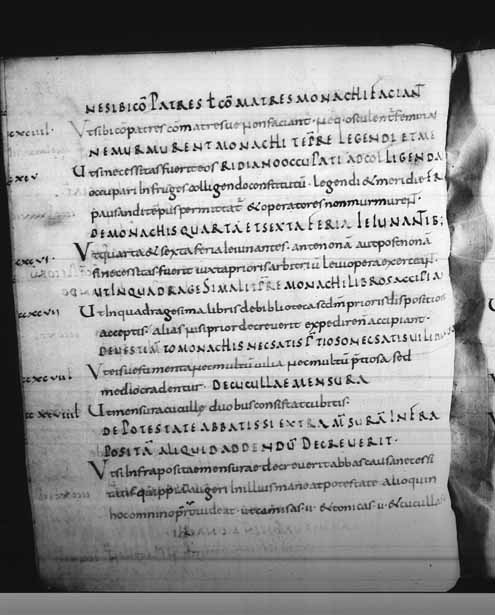 NE SIBI CŌ PATRES ł CŌMATRES MONACHI FACIANT
xcxciiii. Ut sibi cōpatres cōmatresue non faciant. neq; osculent feminas
NE MURMURENT MONACHI TĒPRE LEGENDI ET ME
xcxcv Ut si necessitas fuerit eos RIDIANO OCCUPATI AD COLLIGENDA
occupari In fruges colligendo constitutū. legendi & meridie FR
pausandi tēpus permittat & operatores non murmurent.
DE MONACHIS QUARTA ET SEXTA FERIA IEIUNANTIB;
xcxcvi. Ut quarta & sexta feria ieiunantes. ante nonā aut post nonā
si necessitas fuerit iuxta prioris arbitriū leui opera exerceant.
UT IN QUADRAGESIMALI TPRE MONACHI LIBROS ACCIPIA
xcxcvii Ut In quadragesima libris de biblioteca scdm prioris dispositiōē
acceptis. alias nisi prior decreuerit expediren accipiant.
DE UESTIMTO MONACHIS NEC SATIS PTIOSO NEC SATIS UILI
xcxcviii Ut eis uestimenta nec multū uilia nec multū ptiosa sed
mediocra dentur. DE CUCULLAE MENSURA
xcxcviiii Ut mensura cucullę duobus consistat cubitis.
DE POTESTATE ABBATIS SI EXTRA MSURĀ INFRA
POSITĀ ALIQUID ADDENDŪ DECREUERIT.
Ut si Infra posita mensura re decreuerit abbas causa necessi
tatis quippiā augeri In illius maneat potestate alioquin
hoc omnino puideat ut camisas. ii. & tonicas. ii. & cucullas